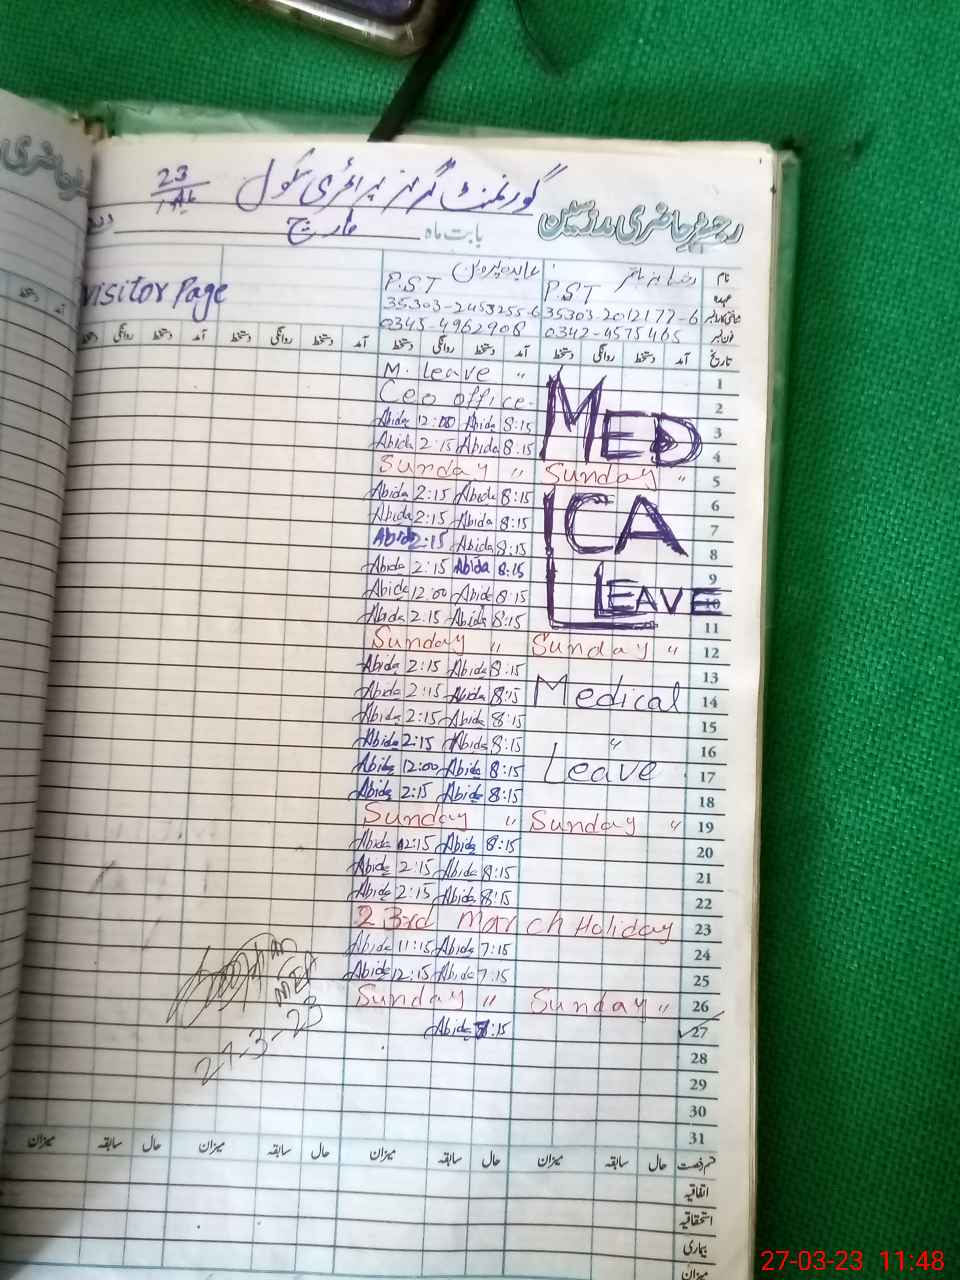 رجسٹر حاضری مدرسین
گورنمنٹ گرلز پرائمری سکول
23
بابت ماہ مارچ
visitor Page
نام
عہدہ P.S.T P.S.T
35303-2012177-6 35303-2453255-6
0342-4575465 0345-4962908
تاریخ آمد دستخط روانگی دستخط آمد دستخط روانگی دستخط آمد دستخط روانگی دستخط آمد دستخط روانگی دستخط
M. Leave " 1
Ceo office 2
Abida 12:00 Abida 8:15 3
Abida 2:15 Abida 8:15 4
MED
Sunday " Sunday " 5
Abida 2:15 Abida 8:15 6
Abida 2:15 Abida 8:15 7
ICA
Abida 2:15 Abida 8:15 8
Abida 2:15 Abida 8:15 9
Abida 12:00 Abida 8:15 10
L LEAVE
Abida 2:15 Abida 8:15 11
Sunday " Sunday " 12
Abida 2:15 Abida 8:15 13
Abida 2:15 Abida 8:15 Medical 14
Abida 2:15 Abida 8:15 15
Abida 2:15 Abida 8:15 " 16
Abida 12:00 Abida 8:15 Leave 17
Abida 2:15 Abida 8:15 18
Sunday " Sunday " 19
Abida 2:15 Abida 8:15 20
Abida 2:15 Abida 8:15 21
Abida 2:15 Abida 8:15 22
23rd March Holiday 23
Abida 11:15 Abida 7:15 24
Abida 12:15 Abida 7:15 25
Sunday " Sunday " 26
Abida 8:15 27
27-3-23
28
29
30
31
قسم رخصت حال سابقہ میزان حال سابقہ میزان حال سابقہ میزان حال سابقہ میزان
اتفاقیہ
استحقاقیہ
بیماری
میزان
27-03-23 11:48